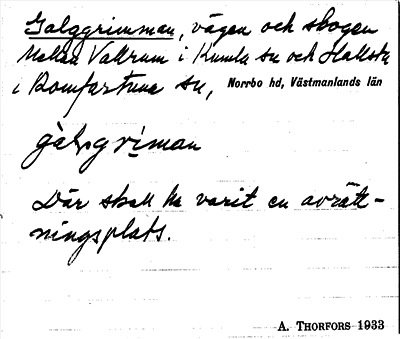 Galggrimman, vägen och skogen
mellan Vallrum i Kumla sn och Hallsta
i Romfartuna sn, Norrbo hd, Västmanlands län
gàl₎gri̇man
Där skall ha varit en avrätt-
ningsplats.
A. THORFORS 1933